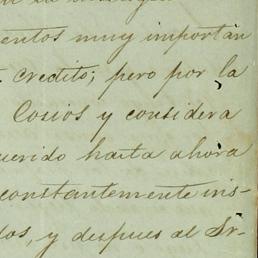 entos muy importan
credito; pero por la
Cocios y considera
uerido hasta ahora
constantemente ins-
dos, y despues al Sr-